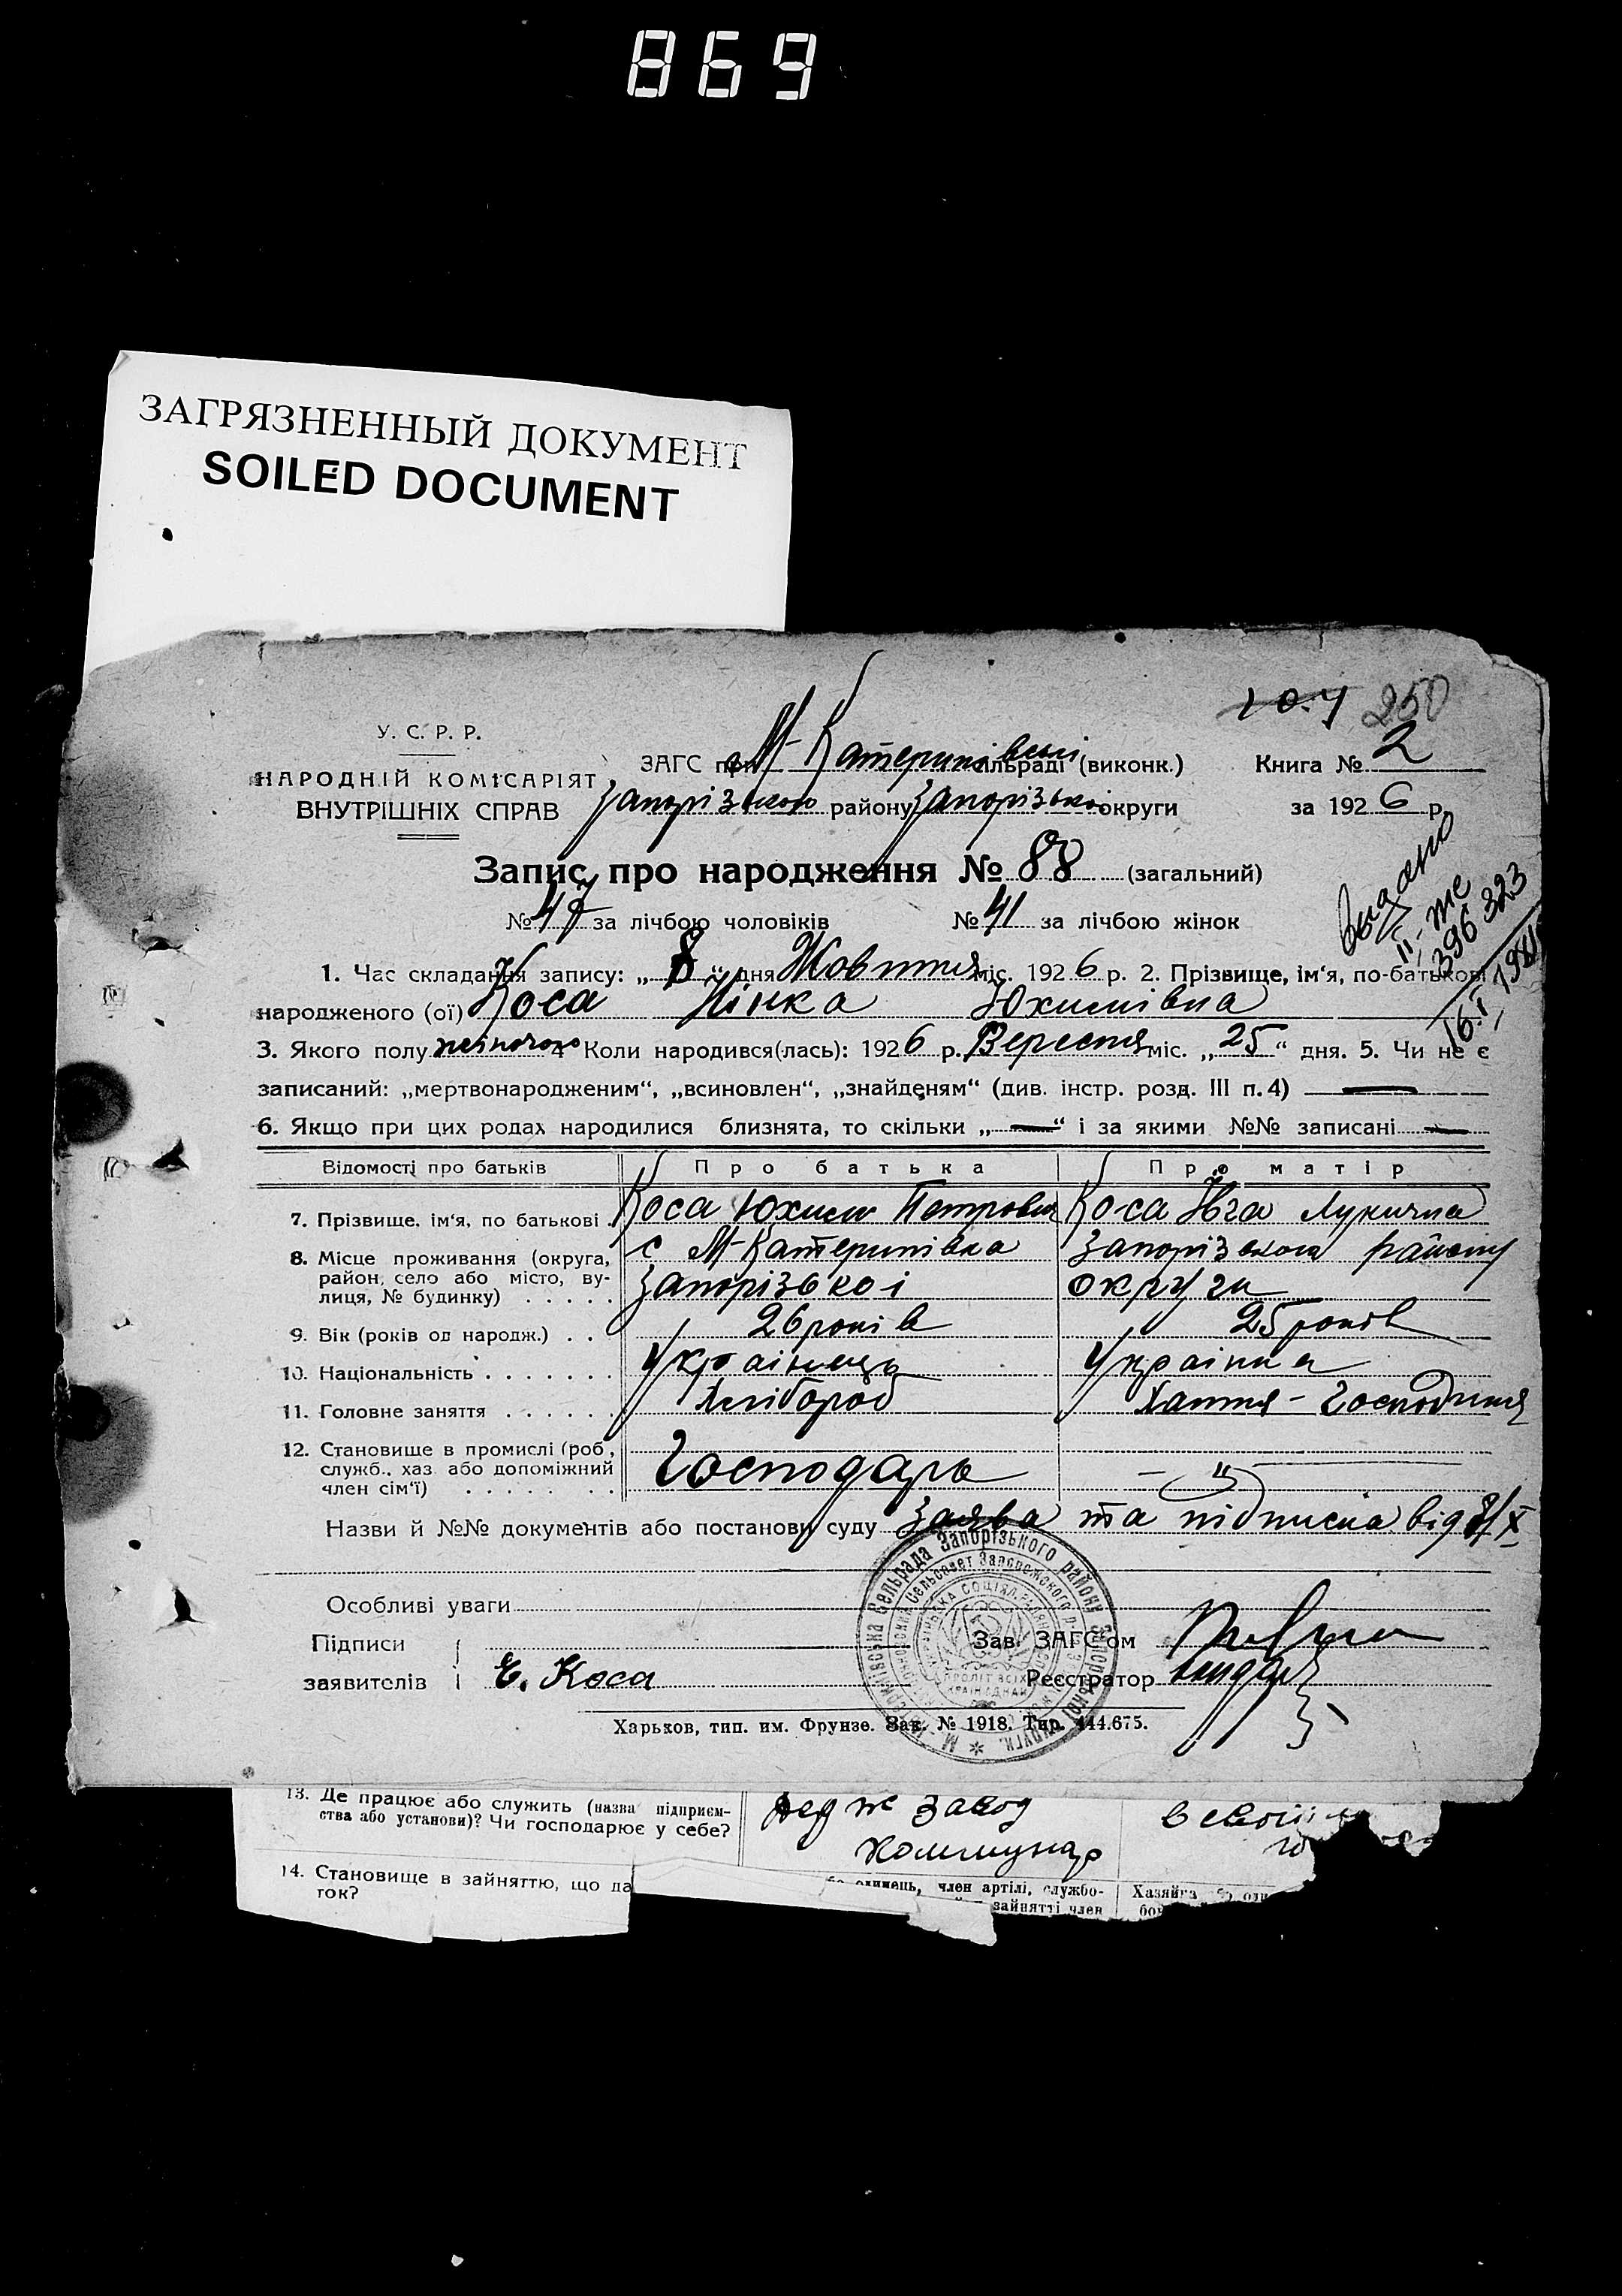 869
ЗАГРЯЗНЕННЫЙ ДОКУМЕНТ
SOILED DOCUMENT
250
У. С. Р. Р.
НАРОДНІЙ КОМІСАРІЯТ
ВНУТРІШНІХ СПРАВ
ЗАГС при М-Катеринівській сільраді (виконк.)
Запорізького району Запорізької округи
Книга № 2
за 1926 р.
Запис про народження № 88 (загальний)
№ 47 за лічбою чоловіків № 41 за лічбою жінок
видано
II-ЖС
396323
16.I 1981
1. Час складання запису: „8“ дня Жовтня міс. 1926 р. 2. Прізвище, ім‘я, по-батькові
народженого (ої) Коса Нінка Юхимівна
3. Якого полу жіночого 4 Коли народився(лась): 1926 р. Вересня міс. „25“ дня. 5. Чи не є
записаний: „мертвонародженим“, „всиновлен“, „знайденям“ (див. інстр. розд. III п. 4) —
6. Якщо при цих родах народилися близнята, то скільки „—“ і за якими №№ записані —
Відомості про батьків Про батька Про матір
7. Прізвище, ім‘я, по батькові Коса Юхим Петрович Коса Ївга Лукична
8. Місце проживання (округа, с М-Катеринівка Запорізького району
район, село або місто, ву-
лиця, № будинку) . . . . . Запорізької округи
9. Вік (років од народж.) . . 26 років 25 років
10. Національність . . . . . . . Українець Українка
11. Головне заняття . . . . . . Хлібороб Хатня-Господиня
12. Становище в промислі (роб.,
служб., хаз. або допоміжний Господарь — „ —
член сім‘ї) . . . . . . . .
Назви й №№ документів або постанови суду Заява та підписка від 8/X
Особливі уваги
Підписи Зав. ЗАГС‘ом
заявителів Е. Коса Реєстратор
М.-Катеринівська Сельрада Запорізького району Запорізької округи.
Харьков, тип. им. Фрунзе. Зак. № 1918. Тир. 444.675.
13. Де працює або служить (назва підприєм-
ства або установи)? Чи господарює у себе?
завод
Коммунар
14. Становище в зайняттю, що да
ток?
одинець, член артілі, службо-
зайнятті член
Хазяйка